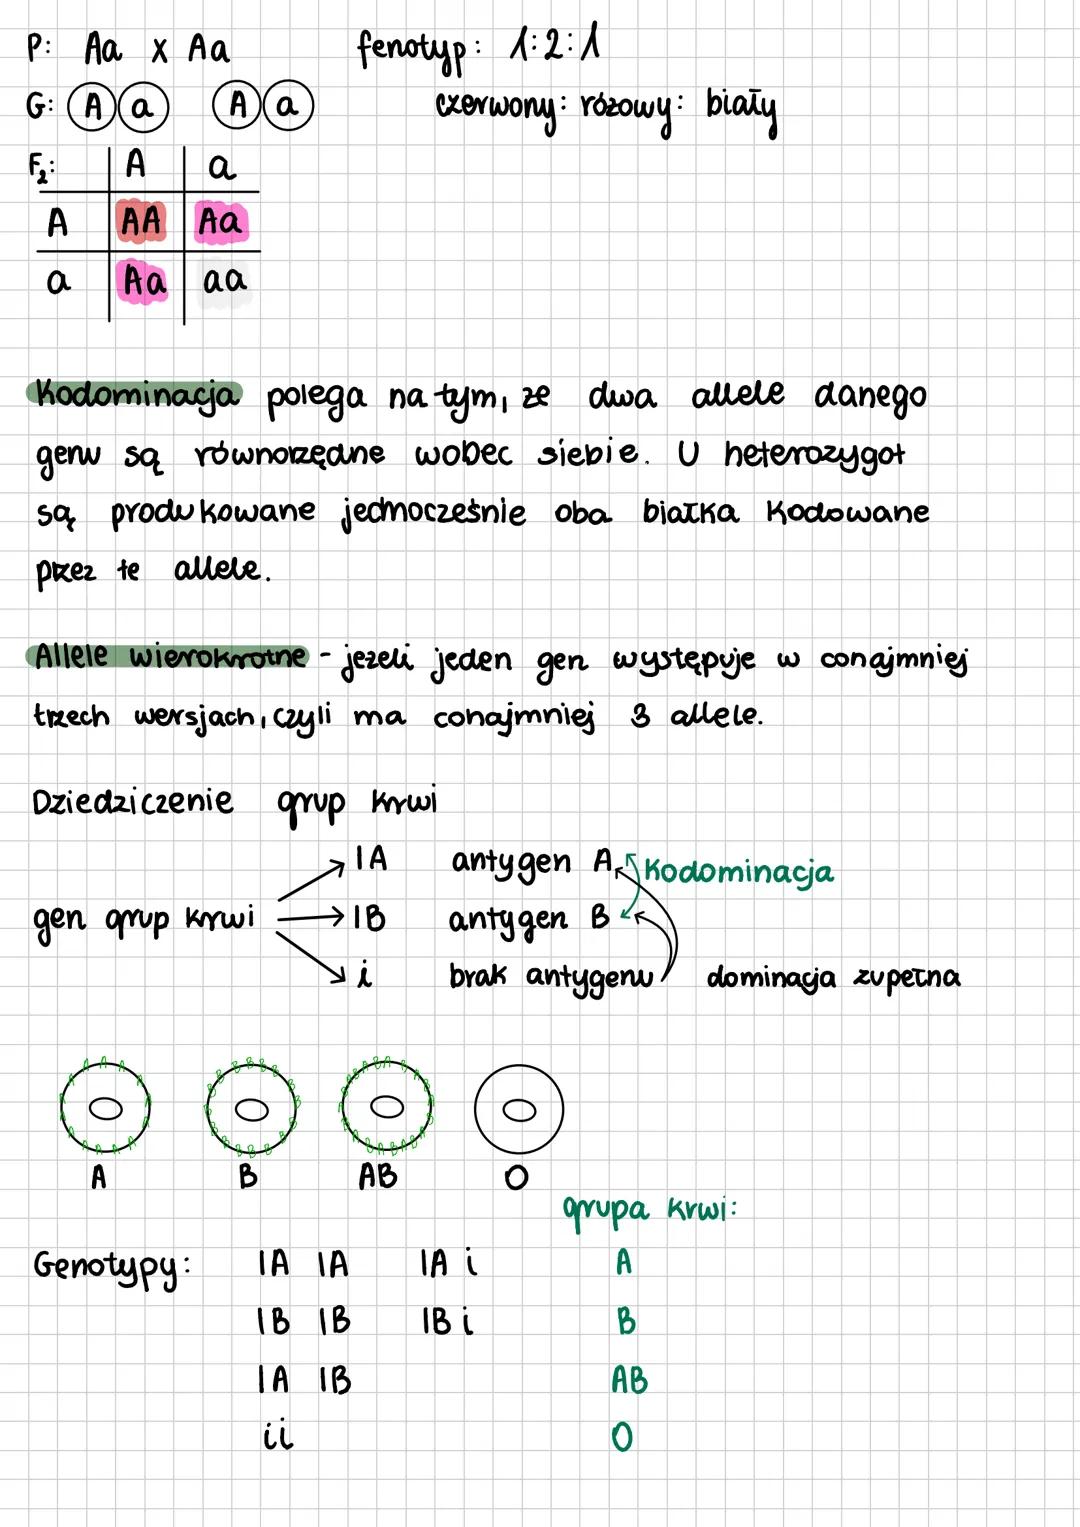 P: Aa x Aa fenotyp: 1:2:1
G: A a A a czerwony: różowy: biały
F2: A a
A AA Aa
a Aa aa
Kodominacja polega na tym, że dwa allele danego
genu są równorzędne wobec siebie. U heterozygot
są produkowane jednocześnie oba białka kodowane
przez te allele.
Allele wielokrotne - jeżeli jeden gen występuje w conajmniej
trzech wersjach, czyli ma conajmniej 3 allele.
Dziedziczenie grup krwi
IA antygen A kodominacja
gen grup krwi IB antygen B
i brak antygenu dominacja zupełna
A B AB O
grupa krwi:
Genotypy: IA IA IA i A
IB IB IB i B
IA IB AB
ii O